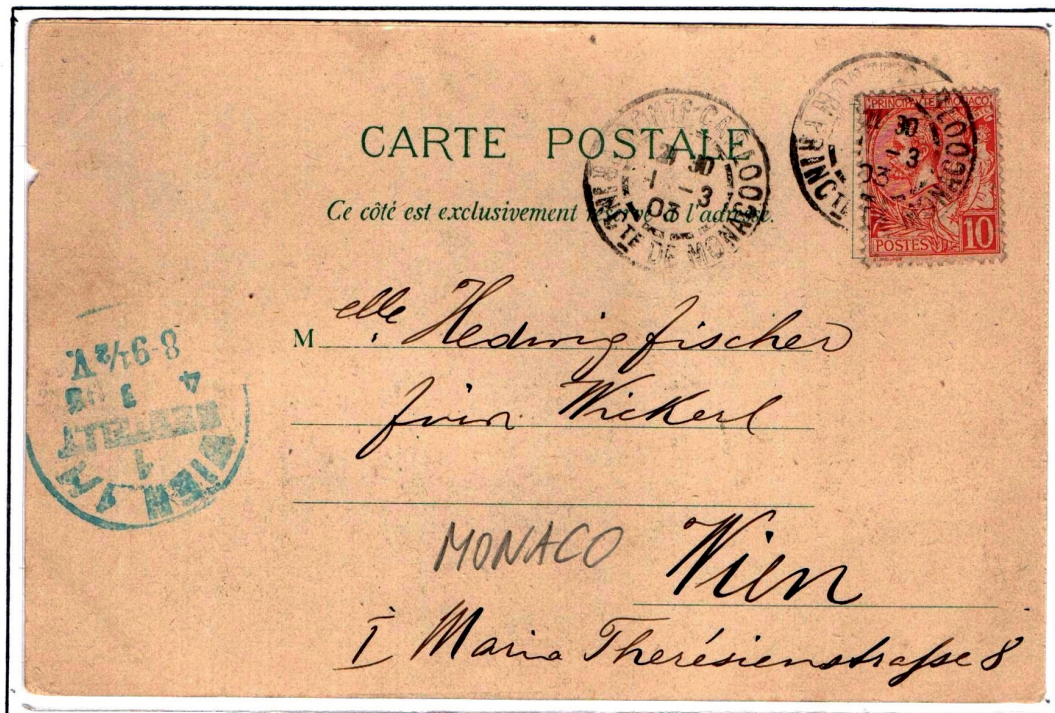 CARTE POSTALE
Ce côté est exclusivement réservé à l'adresse.
MONTE-CARLO
30
1 - 3
03
PRINCTE DE MONACO
MONTE-CARLO
30
1 - 3
03
PRINCTE DE MONACO
PRINCIPAUTÉ DE MONACO
POSTES 10
Melle. Hedwig Fischer
Wickerl
Wien
I Maria Therésienstraſse 8
MONACO
WIEN 1/1
1
BESTELLT
4 3 03
8-9½V.